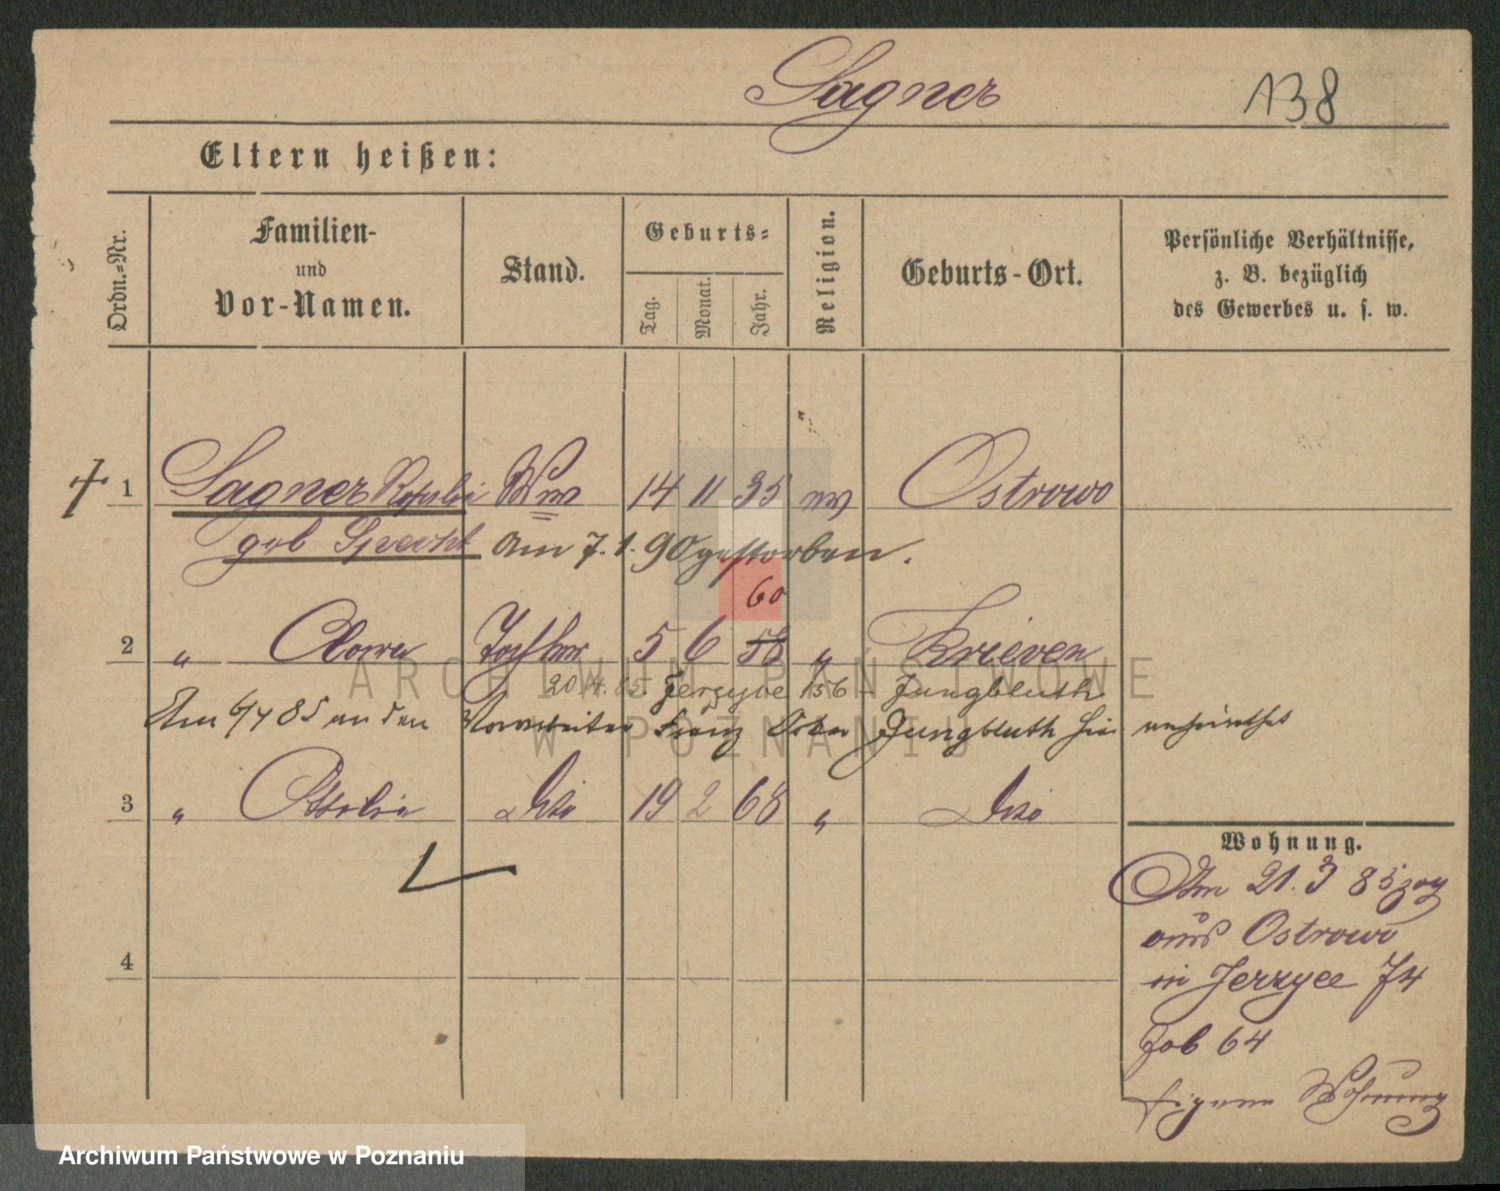 Sagner 138
Eltern heißen:
Ordn.-Nr. Familien- und Vor-Namen. Stand. Geburts- Tag. Monat. Jahr. Religion. Geburts-Ort. Persönliche Verhältnisse, z. B. bezüglich des Gewerbes u. s. w.
1 Sagner Rosalie Ww 14 11 35 Ostrowo
geb Specht Am 7.1.90 gestorben.
60
2 " Clara Tochter 5 6 58 " Krieven
20/4.85. Jerzyce 156 - Jungbluth
Am 6/4 85 an den Vorarbeiter Franz Jungbluth hier verheirathet
3 " Ottilie dito 19 2 68 " dito
Wohnung.
Am 21.3 85 zog
aus Ostrowo
in Jerzyce 74
Job 64
eigene Wohnung
4
ARCHIWUM PAŃSTWOWE
W POZNANIU
Archiwum Państwowe w Poznaniu